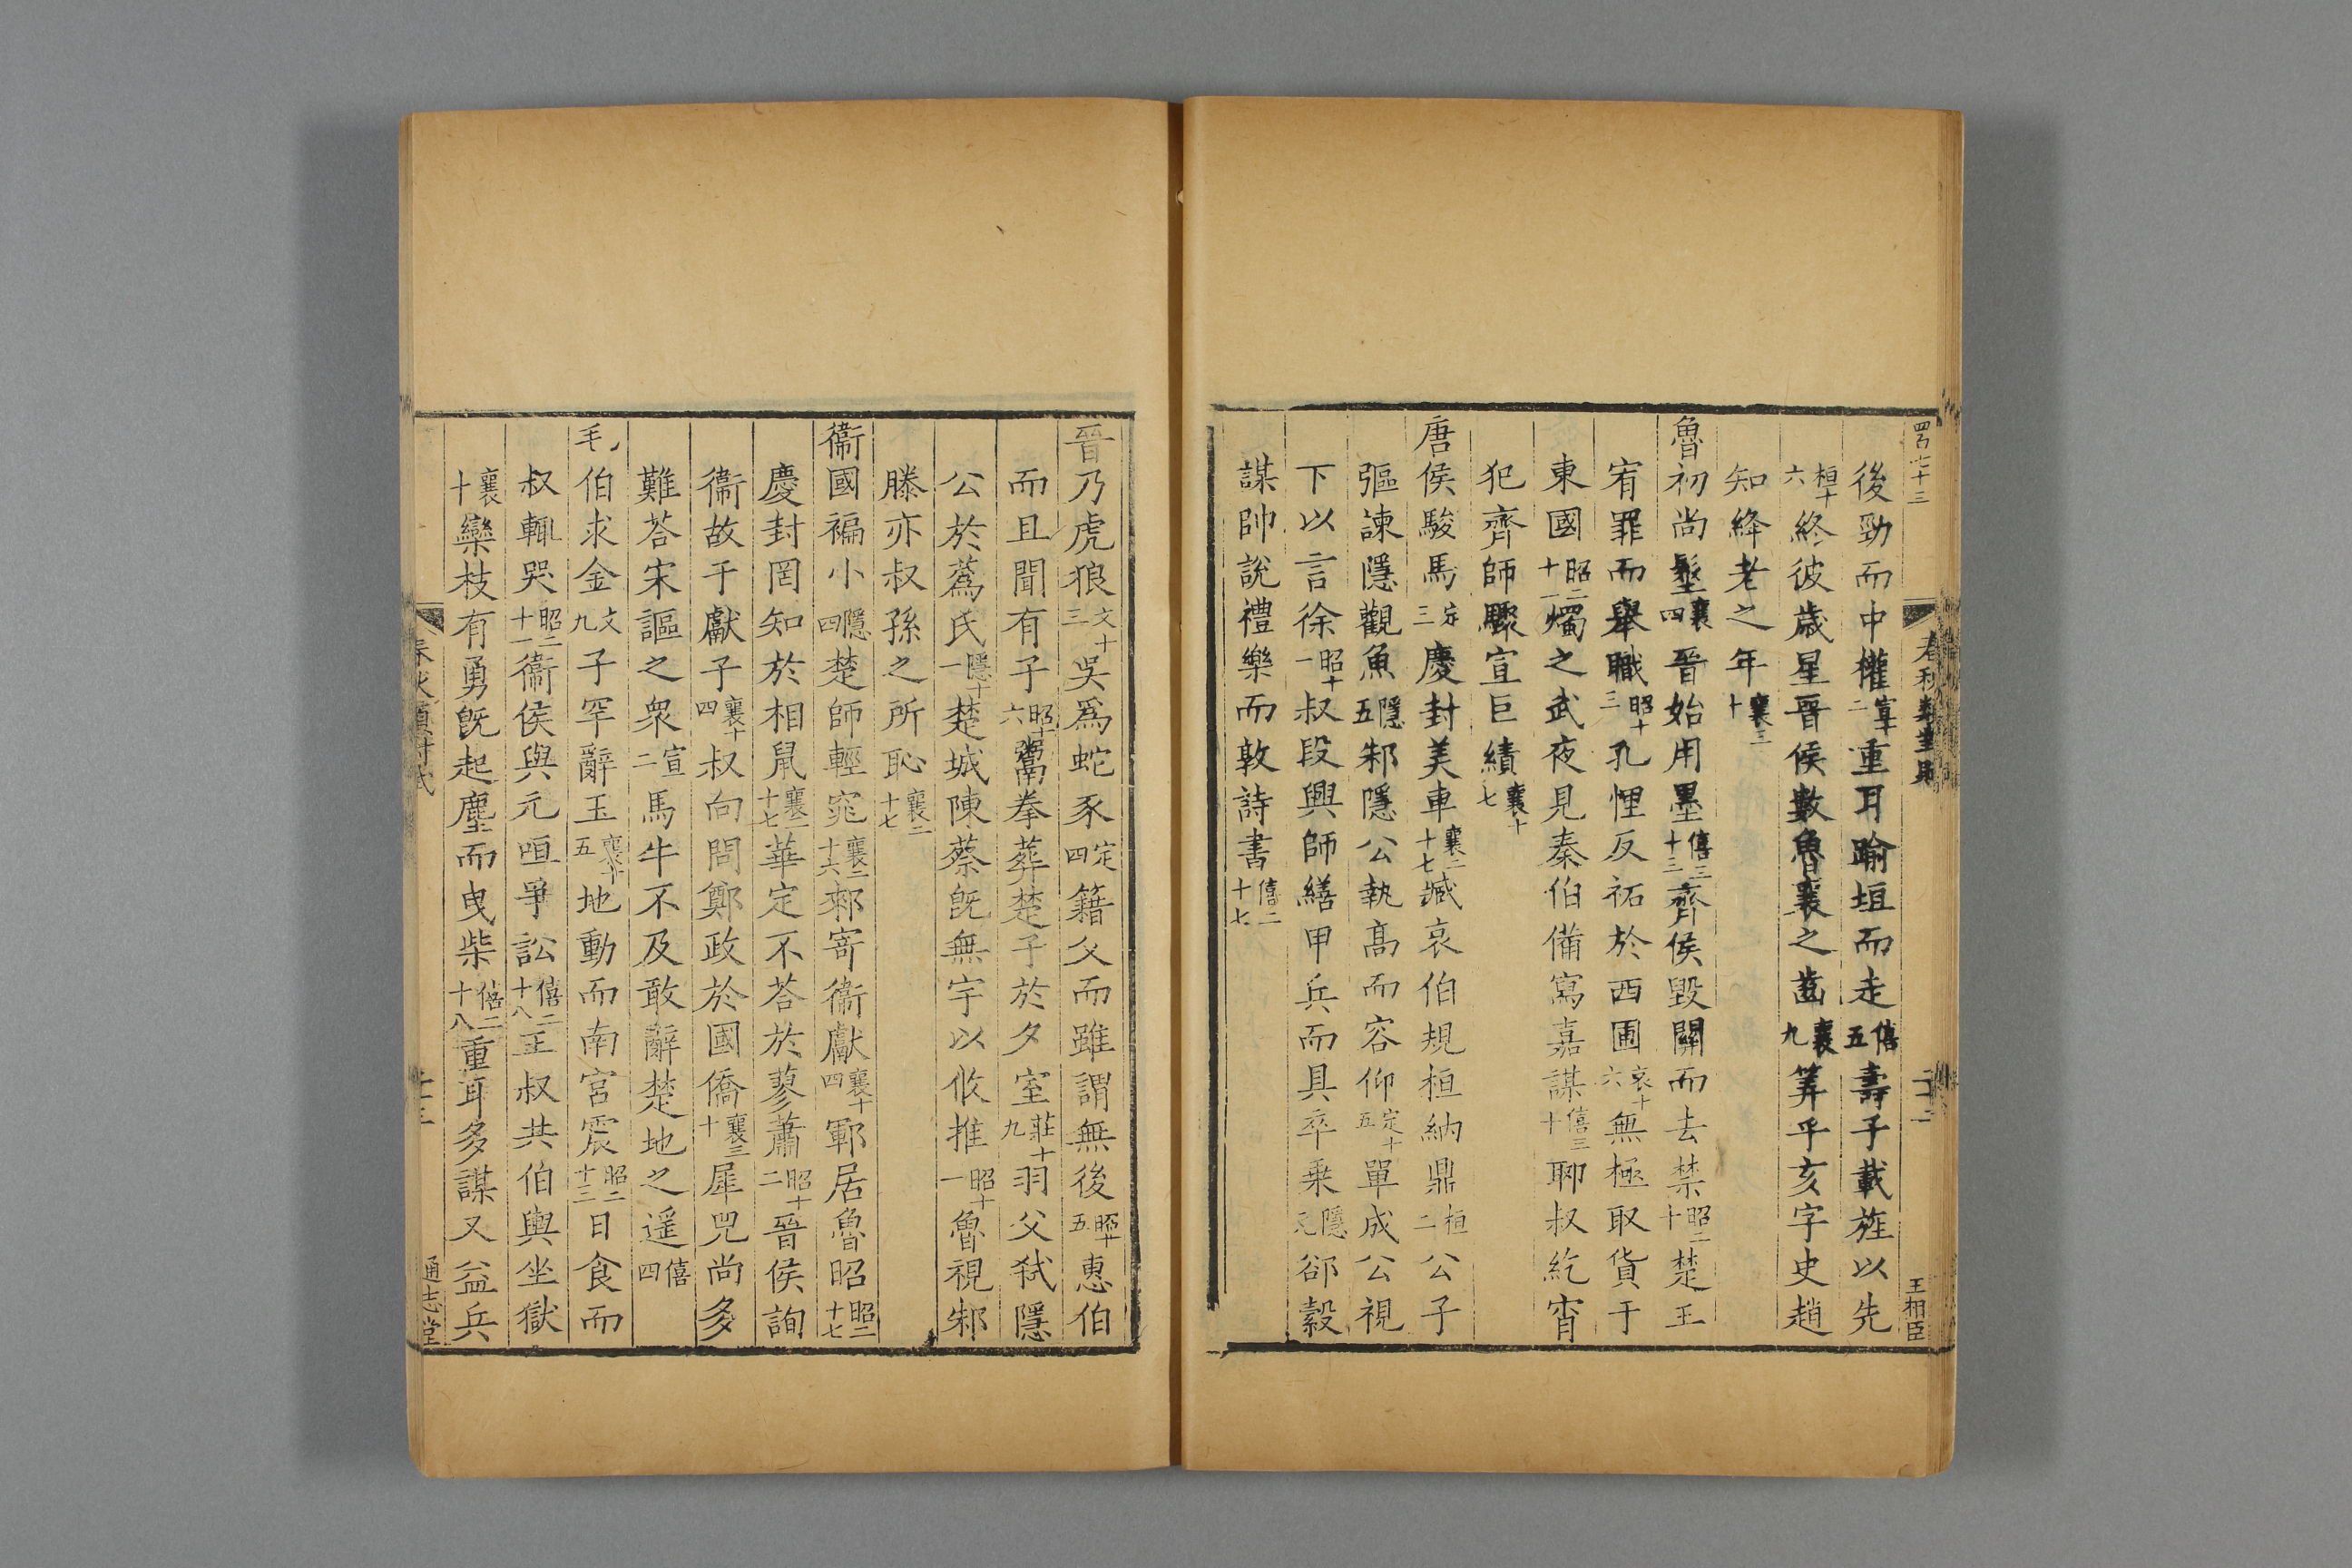 四百七十三
春秋類對賦
二十二
王相臣
後勁而中權宣十二重耳踰垣而走僖五壽子載旌以先
桓十六終彼歲星晉侯數魯襄之齒襄九筭乎亥字史趙
知絳老之年襄三十
魯初尚髽襄四晉始用墨僖三十三齊侯毀關而去禁昭二十楚王
宥罪而舉職昭十三孔悝反祏於西圃哀十六無極取貨于
東國昭二十一燭之武夜見秦伯僖三十備寫嘉謀聊叔紇宵
犯齊師驟宣巨績襄十七
唐侯駿馬定三慶封美車襄二十七臧哀伯規桓納鼎桓二公子
彄諫隱觀魚隱五邾隱公執高而容仰定十五單成公視
下以言徐昭十一叔段興師繕甲兵而具卒乗隱元郤縠
謀帥說禮樂而敦詩書僖二十七
晉乃虎狼文十三吳爲蛇豕定四籍父而雖謂無後昭十五惠伯
而且聞有子昭十六鬻拳葬楚子於夕室莊十九羽父弑隱
公於蒍氏隱十一楚城陳蔡旣無宇以攸推昭十一魯視邾
滕亦叔孫之所恥襄二十七
衞國褊小隱四楚師輕窕襄二十六郲寄衞獻襄十四鄆居魯昭昭二十七
慶封罔知於相鼠襄二十七華定不荅於蓼蕭昭十二晉侯詢
衞故于獻子襄十四叔向問鄭政於國僑襄三十犀兕尚多
難荅宋謳之衆宣二馬牛不及敢辭楚地之遥僖四
毛伯求金文九子罕辭玉襄十五地動而南宮震昭二十二日食而
叔輒哭昭二十一衞侯與元咺爭訟僖二十八王叔共伯輿坐獄
襄十欒枝有勇旣起塵而曳柴僖二十八重耳多謀又益兵
春秋類對賦
二十三
通志堂